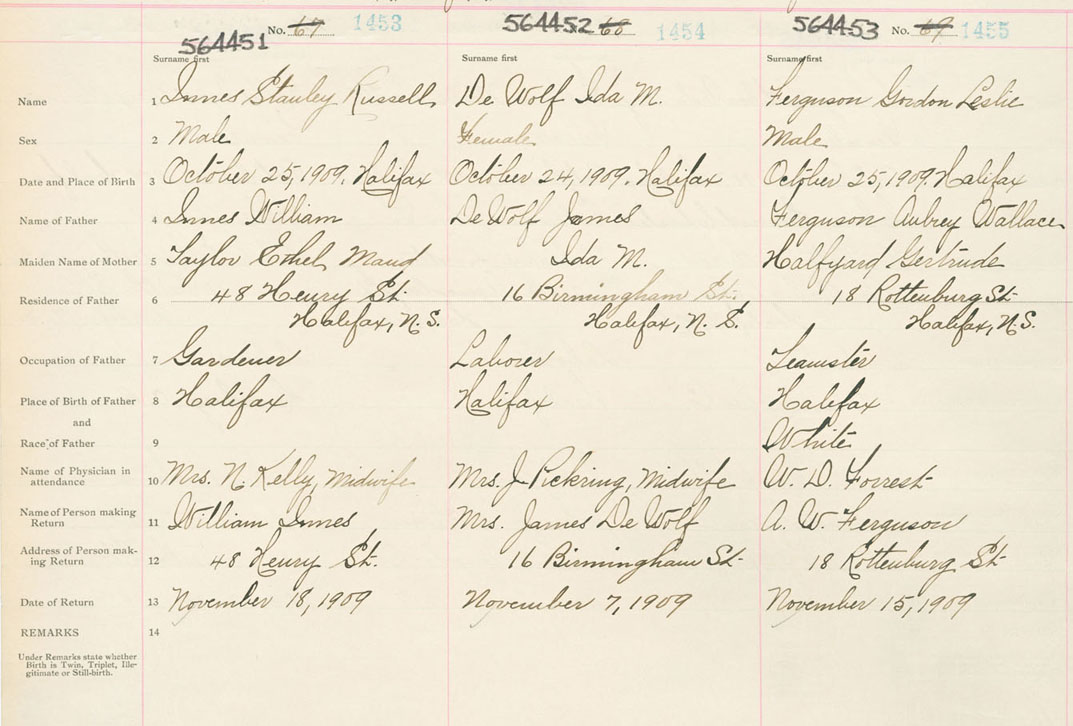 564451 No. 67 1453 564452 68 1454 564453 No. 69 1455
Surname first Surname first Surname first
Name 1 Innes Stanley Russell De Wolf Ida M. Ferguson Gordon Leslie
Sex 2 Male Female Male
Date and Place of Birth 3 October 25, 1909. Halifax October 24, 1909. Halifax October 25, 1909. Halifax
Name of Father 4 Innes William De Wolf James Ferguson Aubrey Wallace
Maiden Name of Mother 5 Taylor Ethel Maud Ida M. Halfyard Gertrude
Residence of Father 6 48 Henry St. 16 Birmingham St. 18 Rottenburg St.
Halifax, N.S. Halifax, N.S. Halifax, N.S.
Occupation of Father 7 Gardener Laborer Teamster
Place of Birth of Father 8 Halifax Halifax Halifax
and
Race of Father 9 White
Name of Physician in attendance 10 Mrs. N. Kelly, Midwife Mrs. J. Pickring, Midwife W. D. Forrest
Name of Person making Return 11 William Innes Mrs. James De Wolf A. W. Ferguson
Address of Person making Return 12 48 Henry St. 16 Birmingham St. 18 Rottenburg St.
Date of Return 13 November 18, 1909 November 7, 1909 November 15, 1909
REMARKS 14
Under Remarks state whether
Birth is Twin, Triplet, Ille-
gitimate or Still-birth.